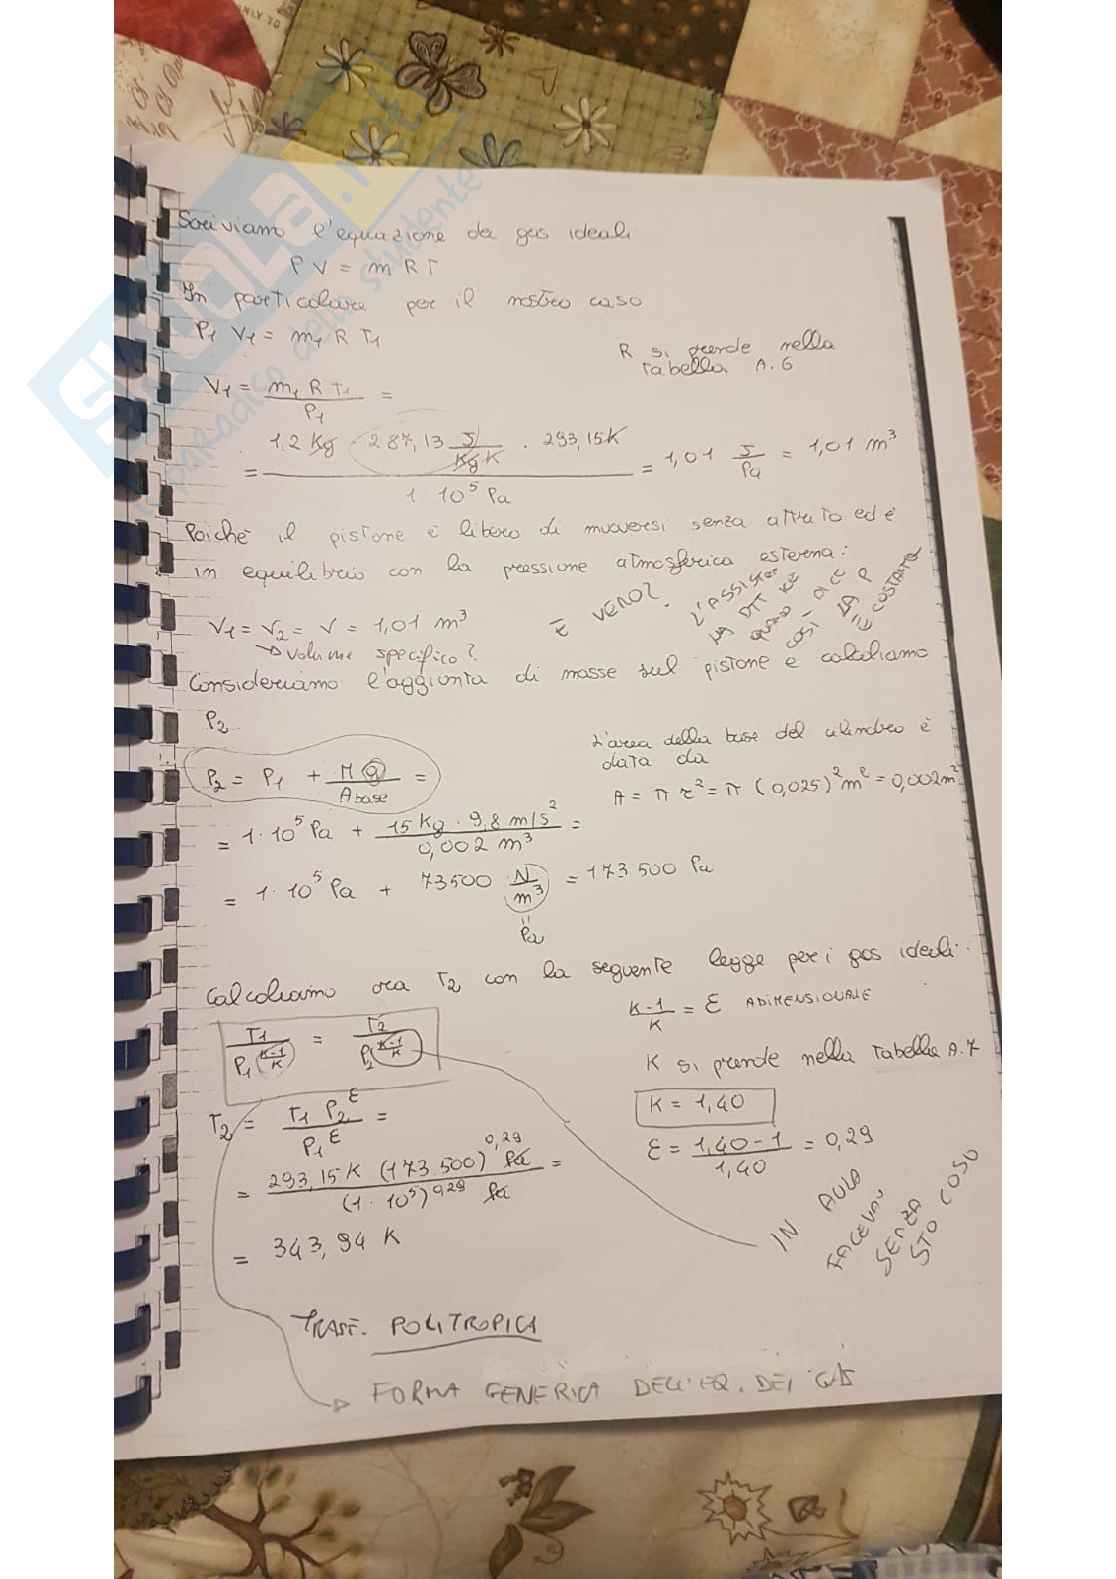 Skuola.net
il paradiso dello studente
Scriviamo l'equazione dei gas ideali
P V = m R T
In particolare per il nostro caso
P1 V1 = m1 R T1
R si prende nella
Tabella A.6
V1 = m1 R T1 / P1 =
= 1,2 Kg 287,13 J/Kg K · 293,15K / 1 10^5 Pa = 1,01 J/Pa = 1,01 m^3
Poiché il pistone è libero di muoversi senza attrito ed è
in equilibrio con la pressione atmosferica esterna:
V1 = V2 = V = 1,01 m^3
→ volume specifico?
È VERO?
L'ASSISTENTE
HA DETTO KE
QUANDO
COSÌ LA P
È COSTANTE
Consideriamo l'aggiunta di masse sul pistone e calcoliamo
P2
P2 = P1 + M g / A base =
L'area della base del cilindro è
data da
A = π r^2 = π (0,025)^2 m^2 = 0,002 m^2
= 1·10^5 Pa + 15 Kg · 9,8 m/s^2 / 0,002 m^3 =
= 1·10^5 Pa + 73500 N/m^3 = 173.500 Pa
Pa
Calcoliamo ora T2 con la seguente legge per i gas ideali:
T1 / P1^(K-1/K) = T2 / P2^(K-1/K)
K-1 / K = ε ADIMENSIONALE
K si prende nella Tabella A.7
K = 1,40
ε = 1,40-1 / 1,40 = 0,29
T2 = T1 P2^ε / P1^ε =
= 293,15 K (173.500)^0,29 Pa / (1·10^5)^0,29 Pa =
= 343,94 K
IN AULA
FACEVAN
SENZA
STO COSO
TRASF. POLITROPICA
FORMA GENERICA DELL'EQ. DEI GAS